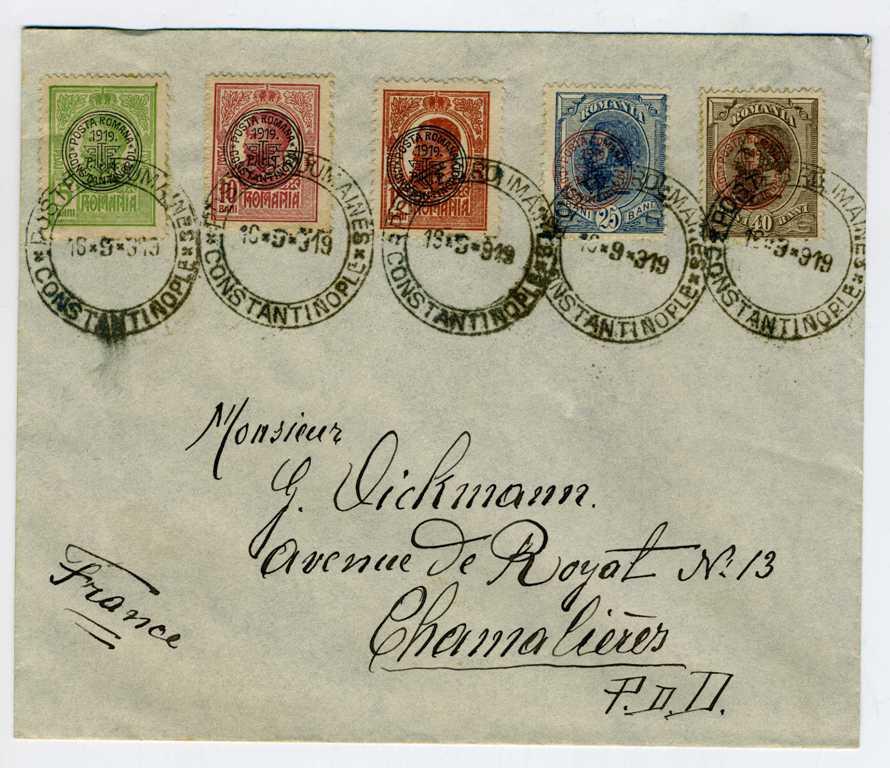 POSTA ROMANA
1919.
P.T.T.
CONSTANTINOPOL
BANI
ROMANIA
POSTES ROUMAINES
16*9*919
CONSTANTINOPLE
POSTA ROMANA
1919.
CONSTANTINOPOL
10
BANI
ROMANIA
ROUMAINES
16*9*919
CONSTANTINOPLE
POSTA ROMANA
1919.
ROMANIA
16*9*919
CONSTANTINOPLE
ROMANIA
25 BANI
ROUMAINES
16*9*919
CONSTANTINOPLE
ROMANIA
40 BANI
ROUMAINES
919
CONSTANTINOPLE
Monsieur
G. Dickmann.
avenue de Royat No. 13
Chamalières
P.D.D.
France